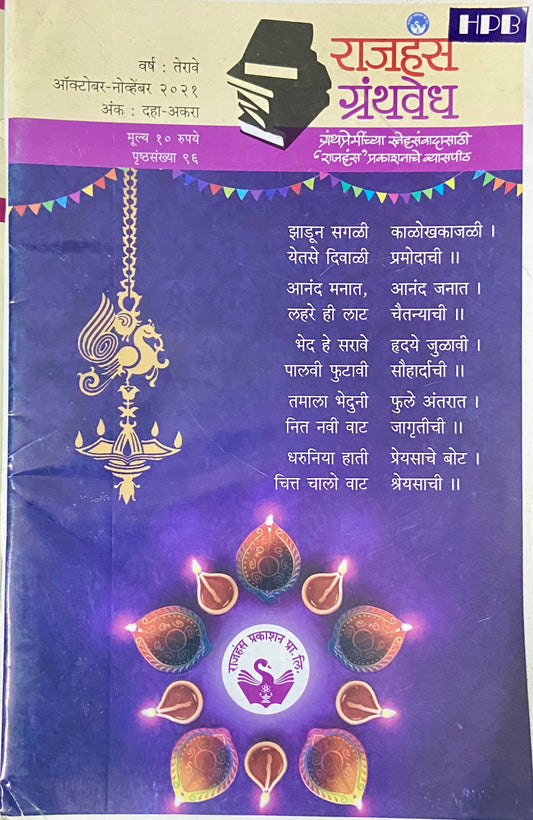 HPB
राजहंस
ग्रंथवेध
वर्ष : तेरावे
ऑक्टोबर-नोव्हेंबर २०२१
अंक : दहा-अकरा
मूल्य १० रुपये
पृष्ठसंख्या ९६
ग्रंथप्रेमींच्या स्नेहसंवादासाठी
‘राजहंस’ प्रकाशनाचे व्यासपीठ
झाडून सगळी काळोखकाजळी ।
येतसे दिवाळी प्रमोदाची ॥
आनंद मनात, आनंद जनात ।
लहरे ही लाट चैतन्याची ॥
भेद हे सरावे हृदये जुळावी ।
पालवी फुटावी सौहार्दाची ॥
तमाला भेदुनी फुले अंतरात ।
नित नवी वाट जागृतीची ॥
धरुनिया हाती प्रेयसाचे बोट ।
चित्त चालो वाट श्रेयसाची ॥
राजहंस प्रकाशन प्रा.लि.